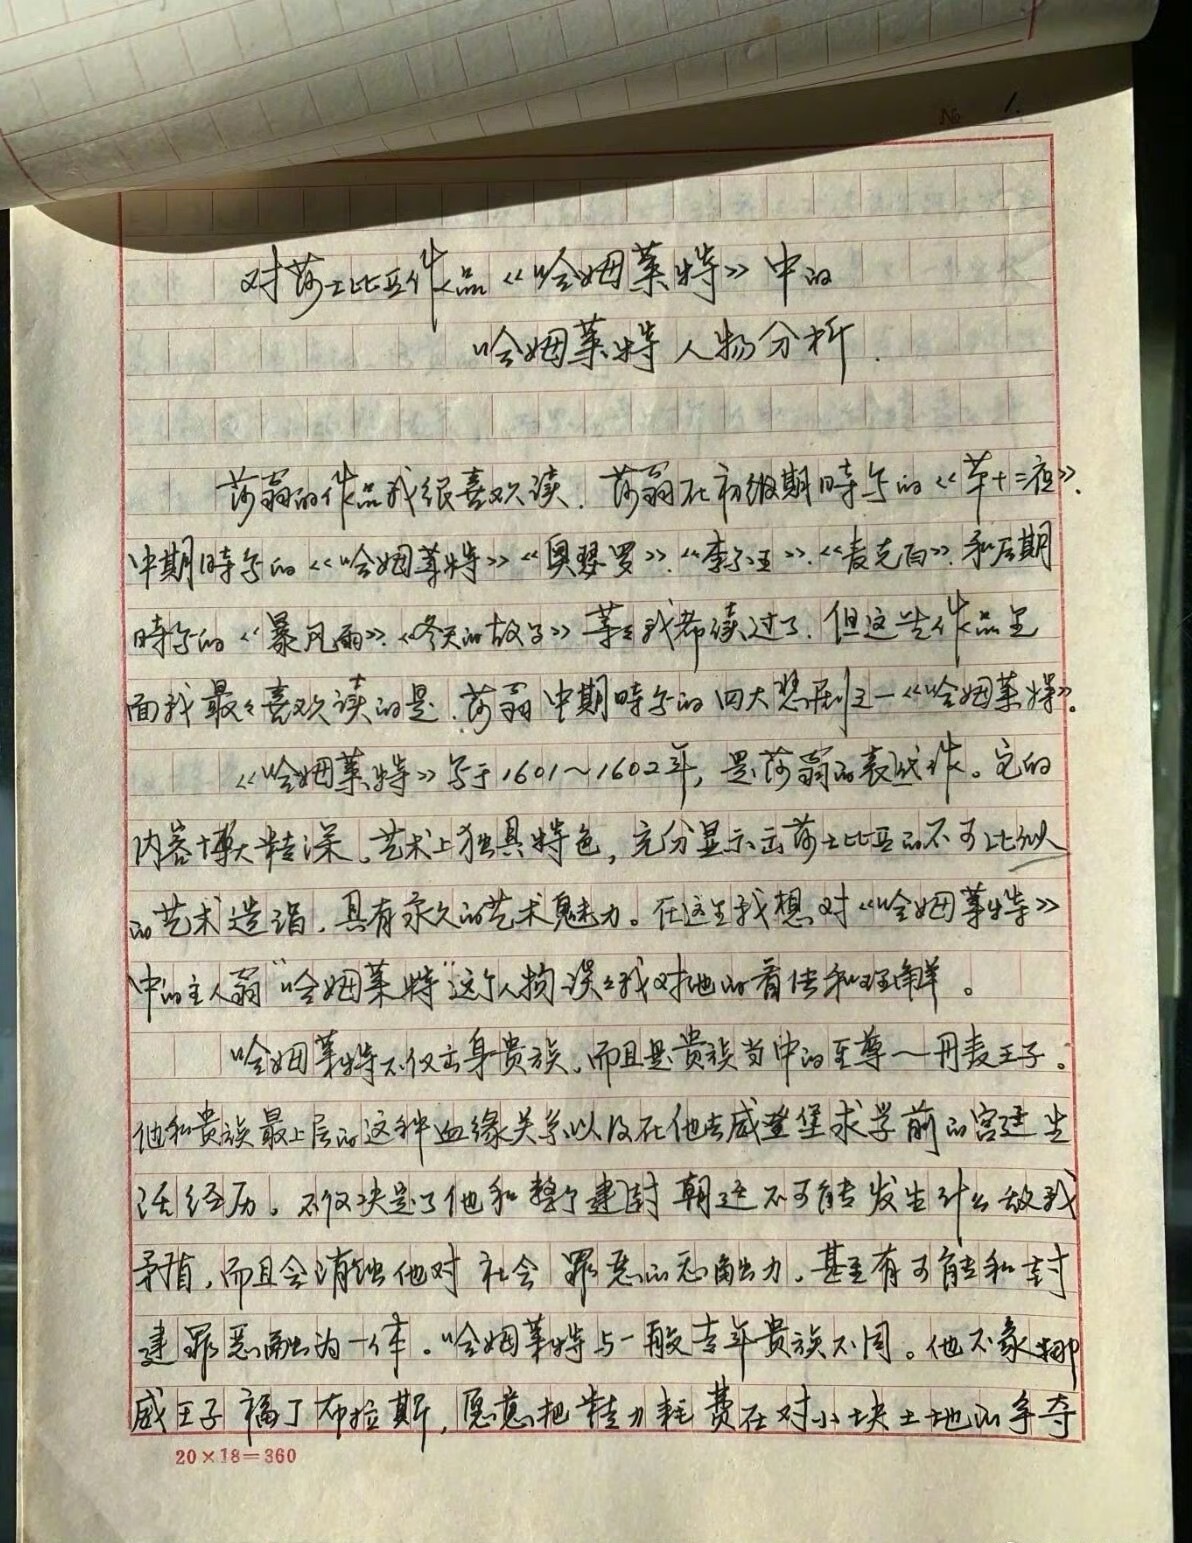 № 1.
对莎士比亚作品《哈姆莱特》中的
哈姆莱特人物分析.
莎翁的作品我很喜欢读.莎翁在初级期時写的《第十二夜》.
中期時写的《哈姆莱特》《奥瑟罗》.《李尔王》.《麦克白》.和后期
時写的《暴风雨》.《冬天的故事》等等我都读过了.但这些作品里
面我最最喜欢读的是.莎翁中期時写的四大悲剧之一《哈姆莱特》.
《哈姆莱特》写于1601~1602年,是莎翁的表代作。它的
内容博大精深、艺术上独具特色,充分显示出莎士比亚的不可比拟
的艺术造诣,具有永久的艺术魅力。在这里我想对《哈姆莱特》
中的主人翁“哈姆莱特”这个人物谈谈我对他的看法和理解。
哈姆莱特不仅出身贵族、而且是贵族当中的至尊一丹麦王子。
他和贵族最上层的这种血缘关系以及在他去威登堡求学前的宫廷生
活经历。不仅决定了他和整个建封朝廷不可能发生什么敌我
矛盾,而且会消蚀他对社会罪恶的 力.甚至有可能和封
建罪恶融为一体。哈姆莱特与一般青年贵族不同。他不象挪
威王子福丁布拉斯,愿意把精力耗费在对小块土地的争夺
20×18=360